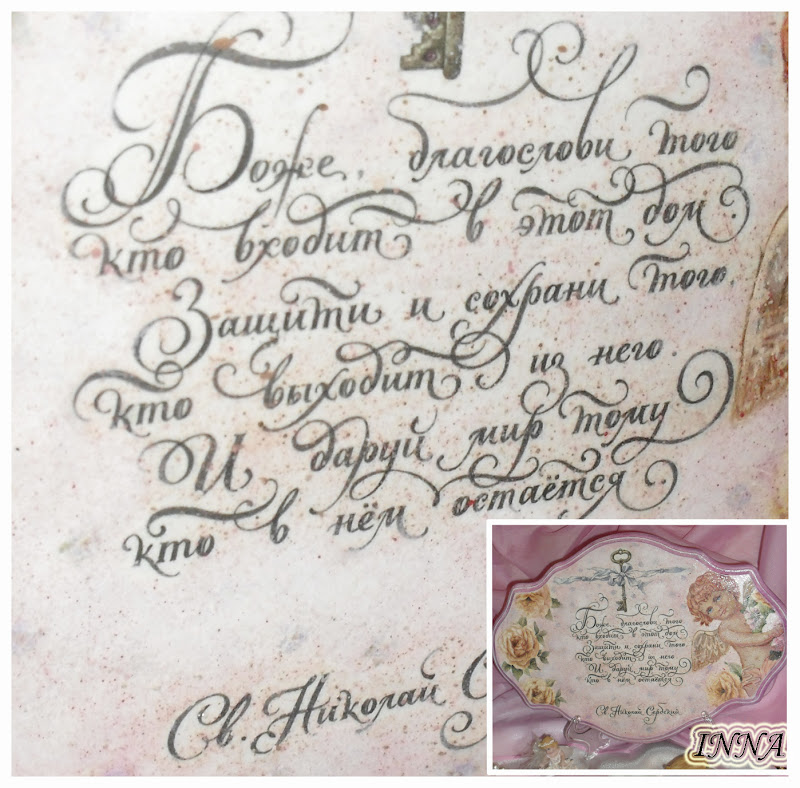 Боже, благослови того
кто входит в этот дом.
Защити и сохрани того.
кто выходит из него.
И даруй мир тому
кто в нём остаётся.
Св. Николай С
Боже, благослови того
кто входит в этот дом.
Защити и сохрани того.
кто выходит из него
И даруй мир тому
кто в нём остаётся.
Св. Николай Сербский
INNA